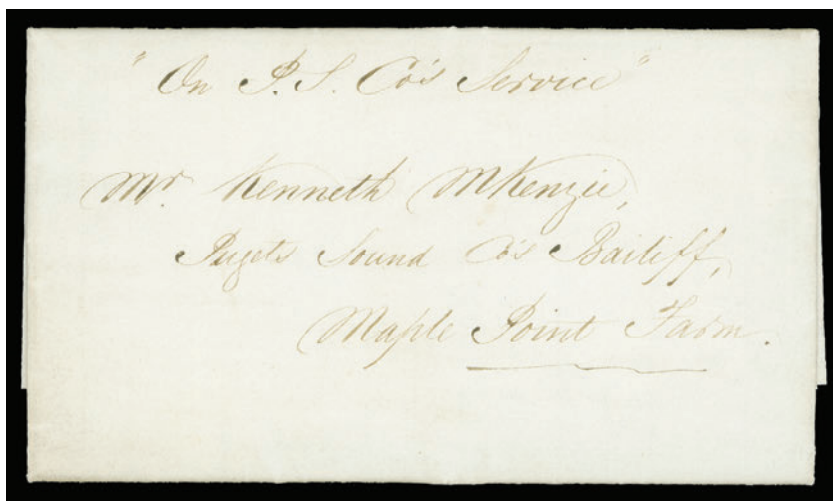 "On P. S. Co's Service"
Mr. Kenneth McKenzie,
Pugets Sound Co's Bailiff,
Maple Point Farm.